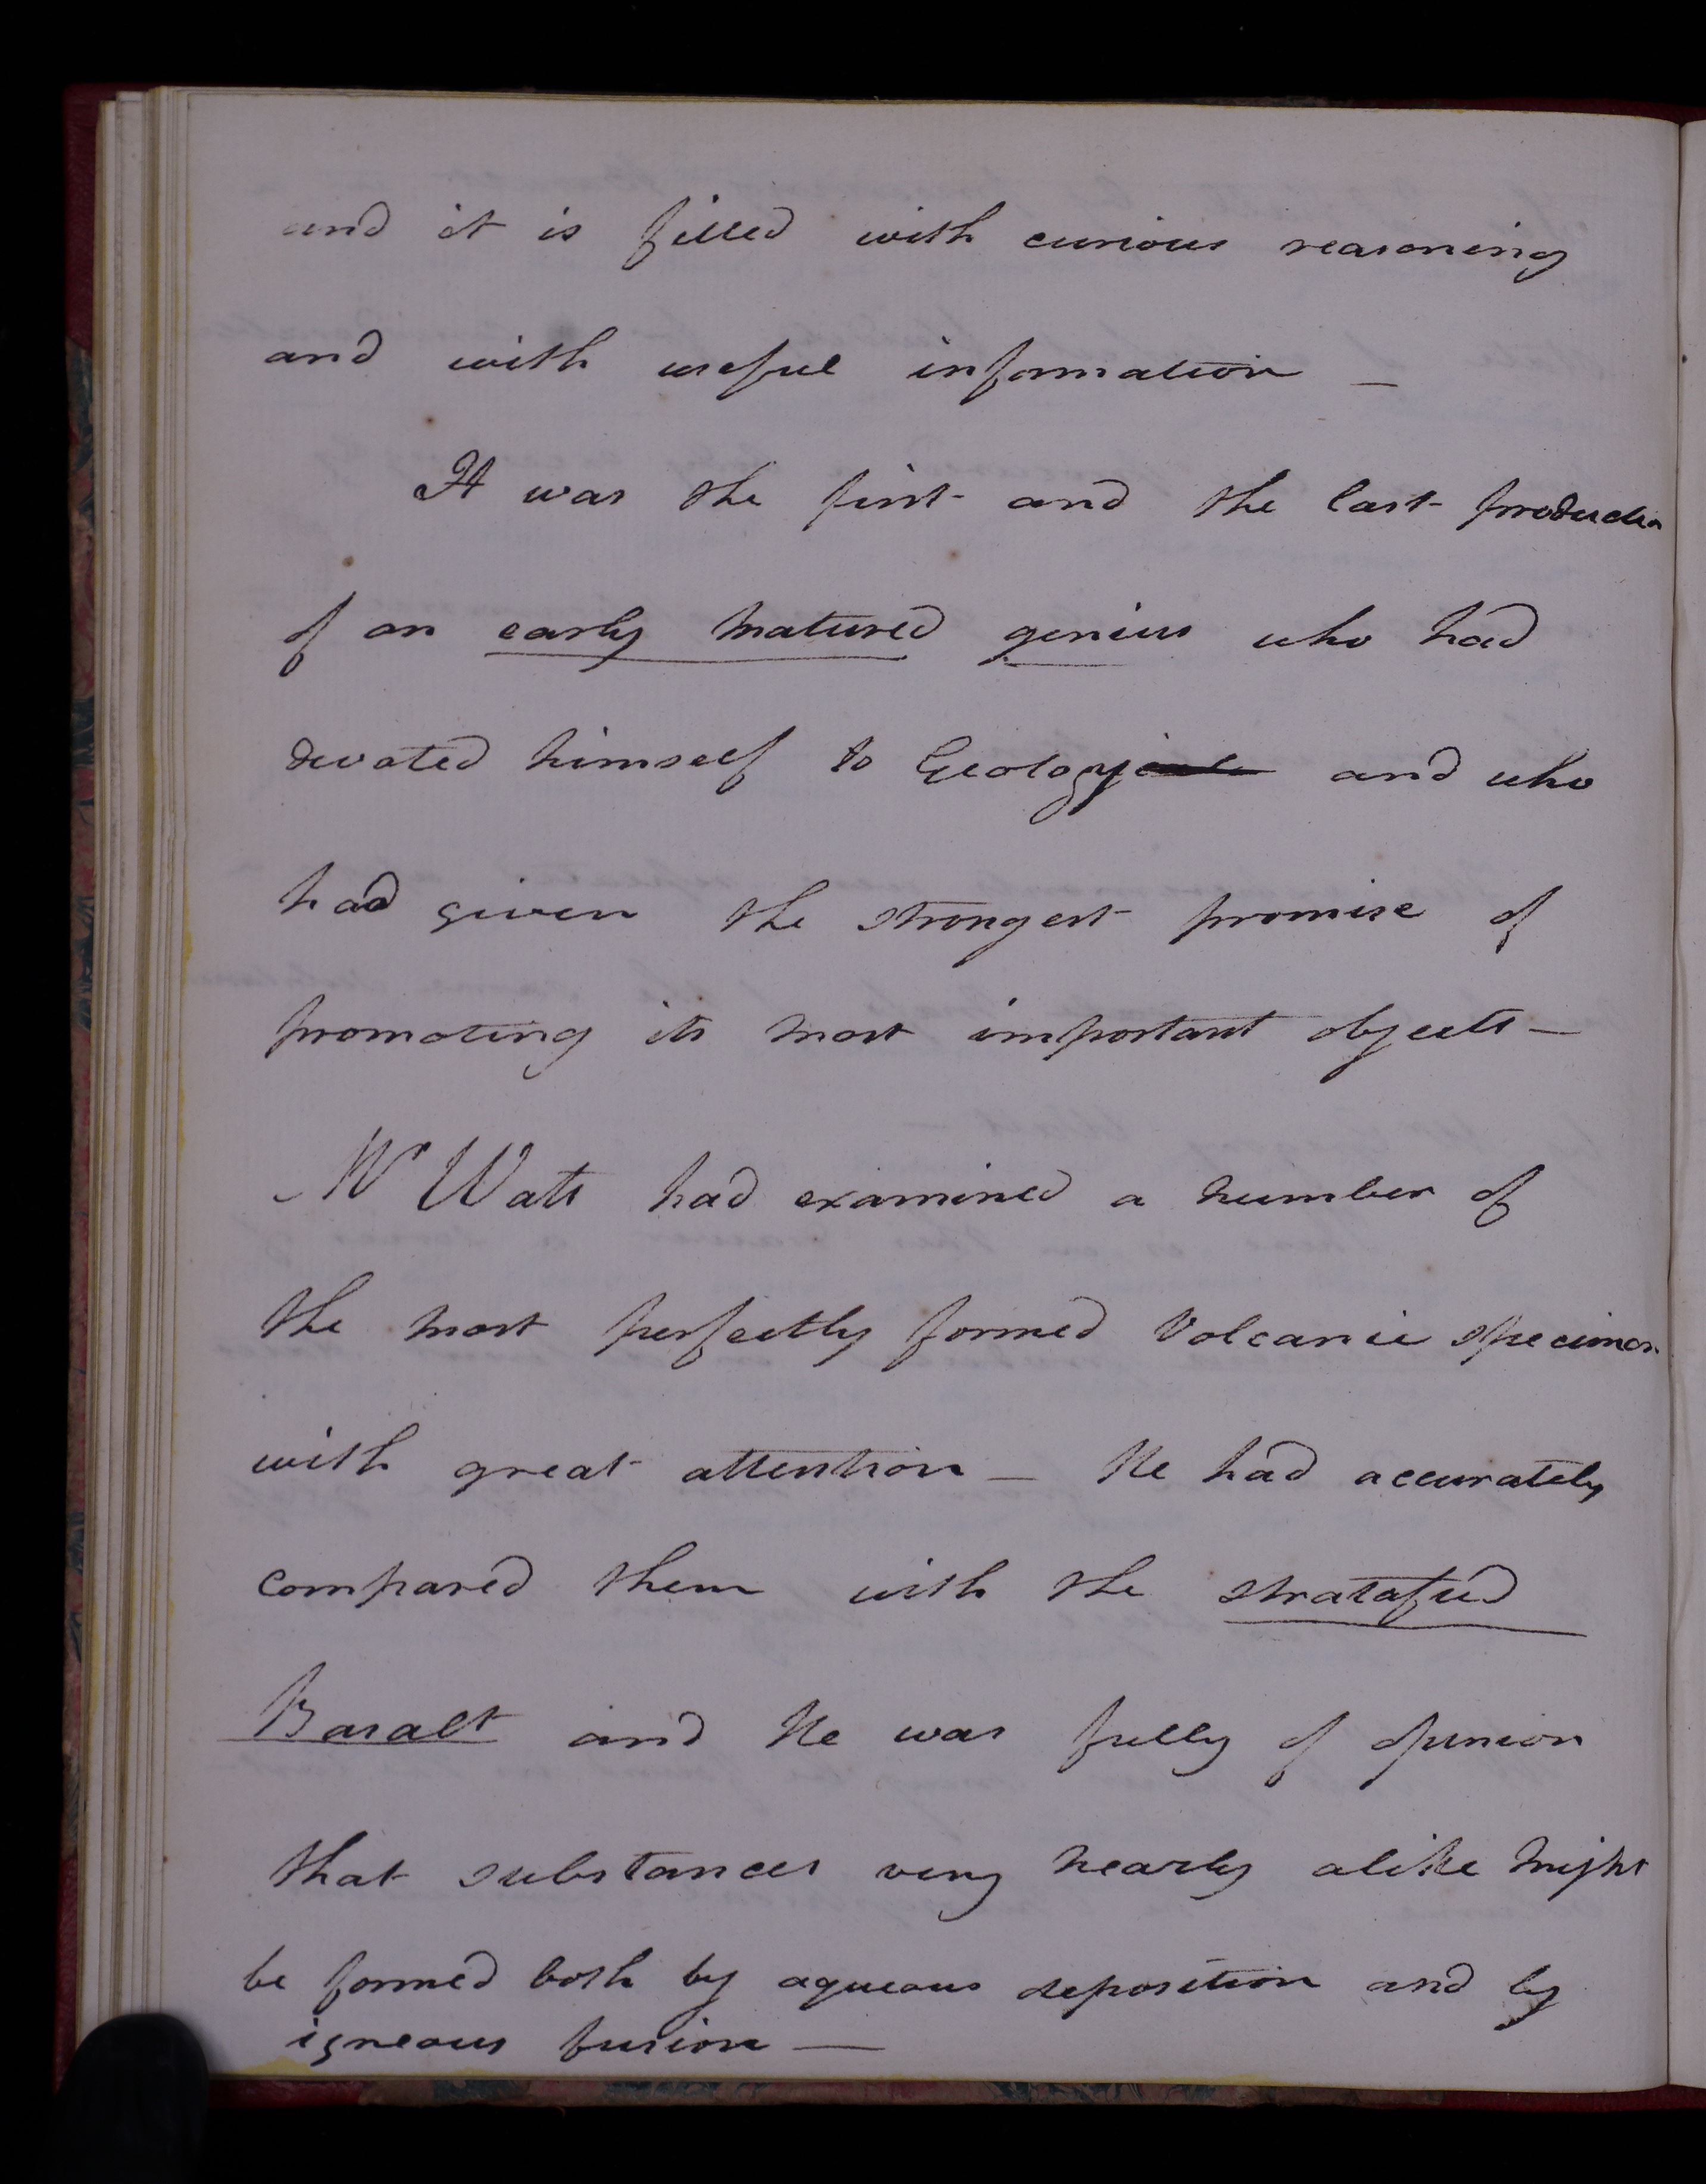 and it is filled with curious reasoning
and with useful information —
It was the first and the last production
of an early matured genius who had
devoted himself to Geology and who
had given the strongest promise of
promoting its most important objects —
Mr Watt had examined a number of
the most perfectly formed Volcanic specimens
with great attention — He had accurately
compared them with the stratafied
Basalt and He was fully of opinion
that substances very nearly alike might
be formed both by aqueous deposition and by
igneous fusion —